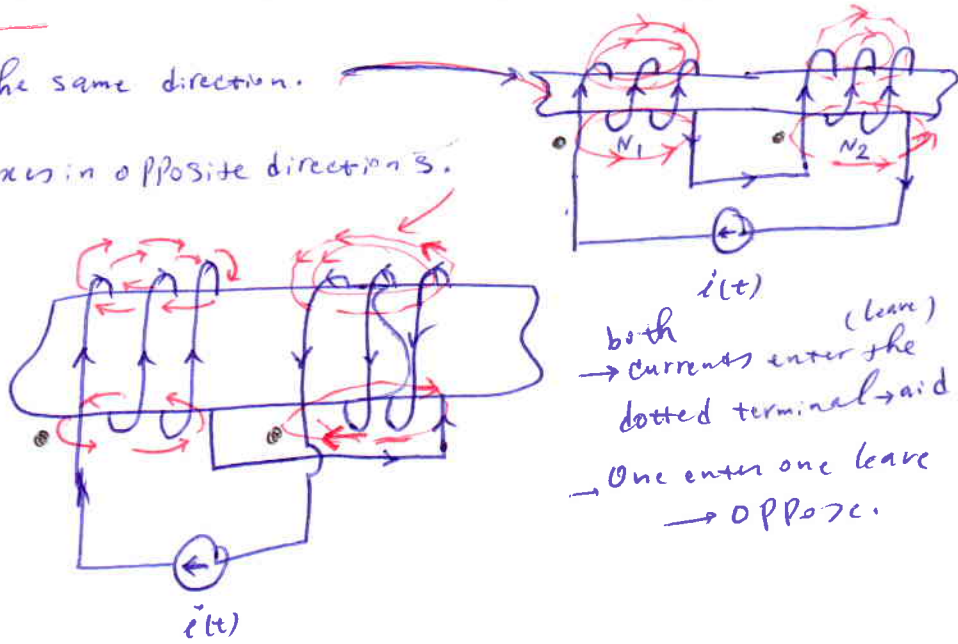 he same direction.
xes in opposite directions.
N1
N2
i(t)
both
(leave)
→ currents enter the
dotted terminal → aid
→ One enter one leave
→ oppose.
i(t)